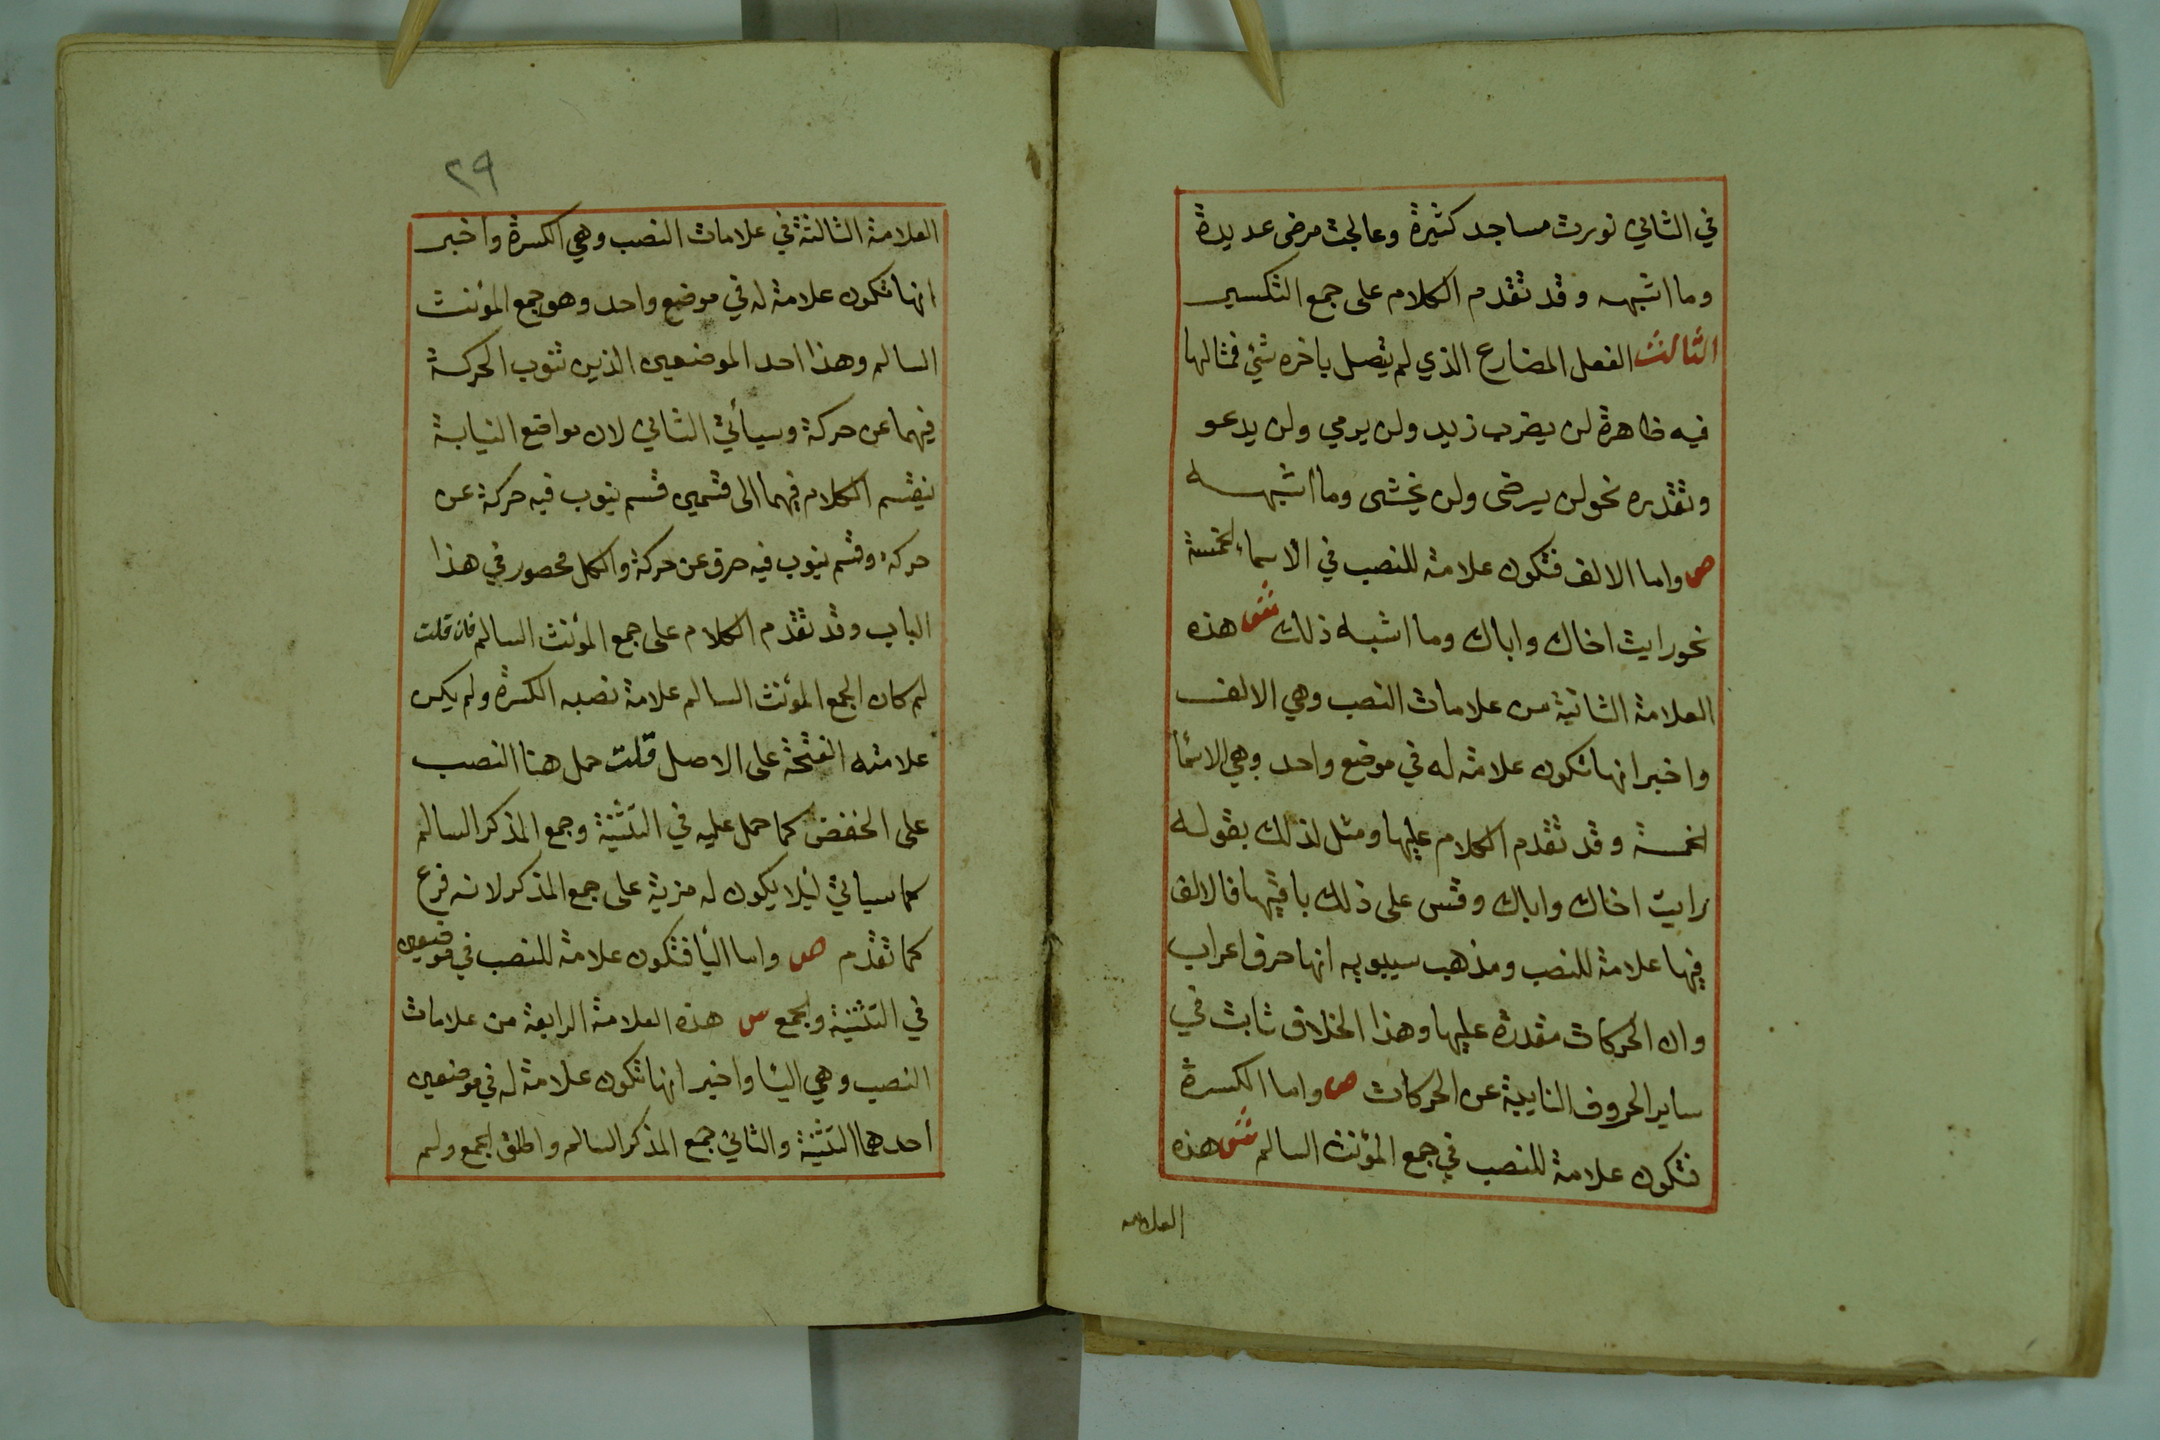 في الثاني نورت مساجد كثيرة وعالجت مرضى عديدة
وما اشبهه وقد تقدم الكلام على جمع التكسير
الثالث الفعل المضارع الذي لم يتصل باخره شئ فمثالها
فيه ظاهرة لن يضرب زيد ولن يرمي ولن يدعو
وتقديره نحو لن يرضى ولن يخشى وما اشبهه
ص واما الالف فتكون علامة للنصب في الاسماء الخمسة
نحو رايت اخاك واباك وما اشبه ذلك ش هذه
العلامة الثانية من علامات النصب وهي الالف
واخبر انها تكون علامة له في موضع واحد وهي الاسما
الخمسة وقد تقدم الكلام عليها ومثل لذلك بقوله
رايت اخاك واباك وقس على ذلك باقيها فالالف
فيها علامة للنصب ومذهب سيبويه انها حرف اعراب
وان الحركات مقدرة عليها وهذا الخلاف ثابت في
ساير الحروف النايبة عن الحركات ص واما الكسرة
فتكون علامة للنصب في جمع المؤنث السالم ش هذه
العلامه
٢٩
العلامة الثالثة في علامات النصب وهي الكسرة واخبر
انها تكون علامة له في موضع واحد وهو جمع المؤنث
السالم وهذا احد الموضعين الذين تنوب الحركة
فيهما عن حركة وسيأتي الثاني لان مواضع النيابة
ينقسم الكلام فيهما الى قسمين قسم ينوب فيه حركة عن
حركة وقسم ينوب فيه حرف عن حركة والكل محصور في هذا
الباب وقد تقدم الكلام على جمع المؤنث السالم فان قلت
لم كان الجمع المؤنث السالم علامة نصبه الكسرة ولم يكن
علامته الفتحة على الاصل قلت حمل هنا النصب
على الخفض كما حمل عليه في التثنية وجمع المذكر السالم
كما سياتي ليلا يكون له مزية على جمع المذكر لانه فرع
كما تقدم ص واما اليا فتكون علامة للنصب في موضعين
في التثنية والجمع ش هذه العلامة الرابعة من علامات
النصب وهي اليا واخبر انها تكون علامة له في موضعين
احدهما التثنية والثاني جمع المذكر السالم واطلق الجمع ولم